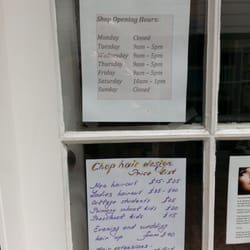 Shop Opening Hours:
Monday Closed
Tuesday 9am – 5pm
Wednesday 9am – 5pm
Thursday 9am – 5pm
Friday 9am – 5pm
Saturday 10am – 1pm
Sunday Closed
Chop hair design
Price List
Men haircut $25 - $35
Ladies haircut $35 - $40
College students $25
Primary school kids $20
Preschool kids $15
Evening and wedding
hair up from $90
Hair extensions